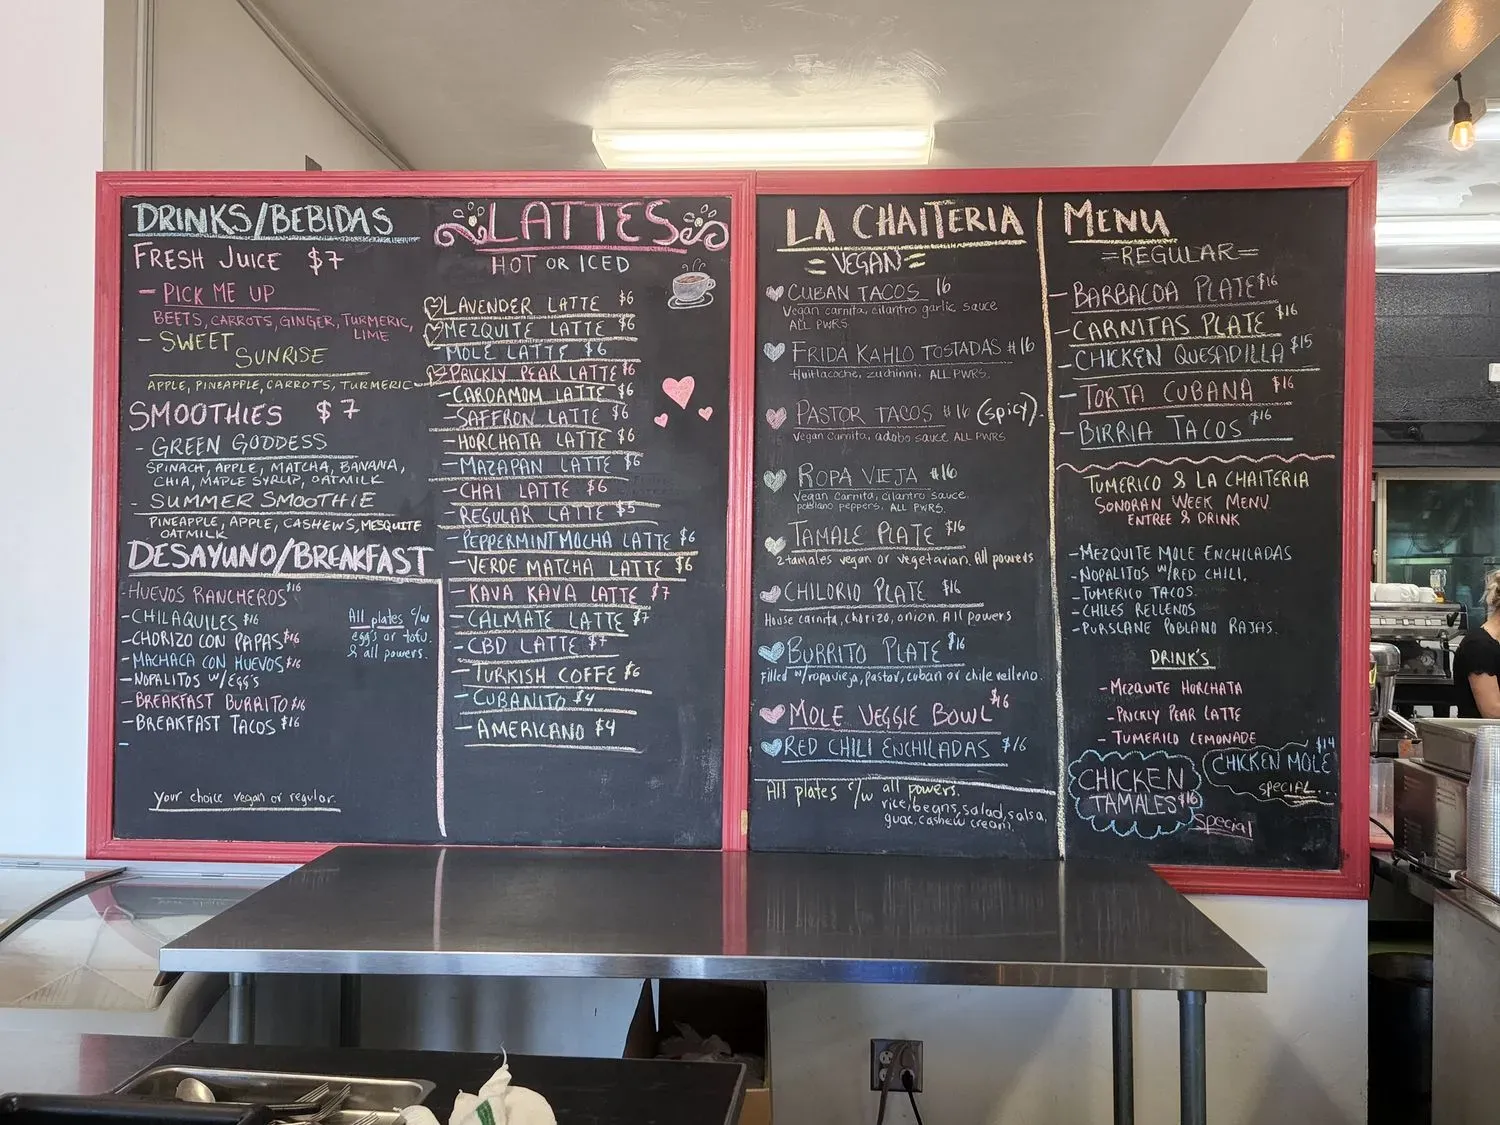 DRINKS/BEBIDAS
FRESH JUICE $7
- PICK ME UP
BEETS, CARROTS, GINGER, TURMERIC,
LIME
- SWEET
SUNRISE
APPLE, PINEAPPLE, CARROTS, TURMERIC
SMOOTHIES $7
- GREEN GODDESS
SPINACH, APPLE, MATCHA, BANANA,
CHIA, MAPLE SYRUP, OATMILK
- SUMMER SMOOTHIE
PINEAPPLE, APPLE, CASHEWS, MESQUITE
OATMILK
DESAYUNO/BREAKFAST
- HUEVOS RANCHEROS $16
- CHILAQUILES $16
- CHORIZO CON PAPAS $16
- MACHACA CON HUEVOS $16
- NOPALITOS W/EGGS
- BREAKFAST BURRITO $16
- BREAKFAST TACOS $16
-
All plates c/w
egg's or tofu.
& all powers.
Your choice vegan or regular.
LATTES
HOT OR ICED
LAVENDER LATTE $6
MEZQUITE LATTE $6
- MOLE LATTE $6
PRICKLY PEAR LATTE $6
- CARDAMOM LATTE $6
- SAFFRON LATTE $6
- HORCHATA LATTE $6
- MAZAPAN LATTE $6
- CHAI LATTE $6
- REGULAR LATTE $5
- PEPPERMINT MOCHA LATTE $6
- VERDE MATCHA LATTE $6
- KAVA KAVA LATTE $7
- CALMATE LATTE $7
- CBD LATTE $7
- TURKISH COFFE $6
- CUBANITO $4
- AMERICANO $4
LA CHAITERIA
= VEGAN =
CUBAN TACOS 16
Vegan carnita, cilantro garlic sauce
ALL PWRS.
FRIDA KAHLO TOSTADAS $16
Huitlacoche, zuchinni. ALL PWRS.
PASTOR TACOS $16 (spicy).
Vegan Carnita, adobo sauce ALL PWRS
ROPA VIEJA $16
Vegan Carnita, cilantro sauce.
poblano peppers. ALL PWRS.
TAMALE PLATE $16
2 tamales vegan or vegetarian. All powers
CHILORIO PLATE $16
House carnita, chorizo, onion. All powers
BURRITO PLATE $16
Filled w/ropa vieja, pastor, cuban or chile relleno.
MOLE VEGGIE BOWL $16
RED CHILI ENCHILADAS $16
All plates c/w all powers.
rice, beans, salad, salsa,
guac, cashew cream.
MENU
=REGULAR=
- BARBACOA PLATE $16
- CARNITAS PLATE $16
- CHICKEN QUESADILLA $15
- TORTA CUBANA $16
- BIRRIA TACOS $16
TUMERICO & LA CHAITERIA
SONORAN WEEK MENU
ENTREE & DRINK
- MEZQUITE MOLE ENCHILADAS
- NOPALITOS W/RED CHILI.
- TUMERICO TACOS.
- CHILES RELLENOS
- PURSLANE POBLANO RAJAS.
DRINK'S
- MEZQUITE HORCHATA
- PRICKLY PEAR LATTE
- TUMERICO LEMONADE
CHICKEN
TAMALES $16
Special
CHICKEN MOLE $14
SPECIAL...